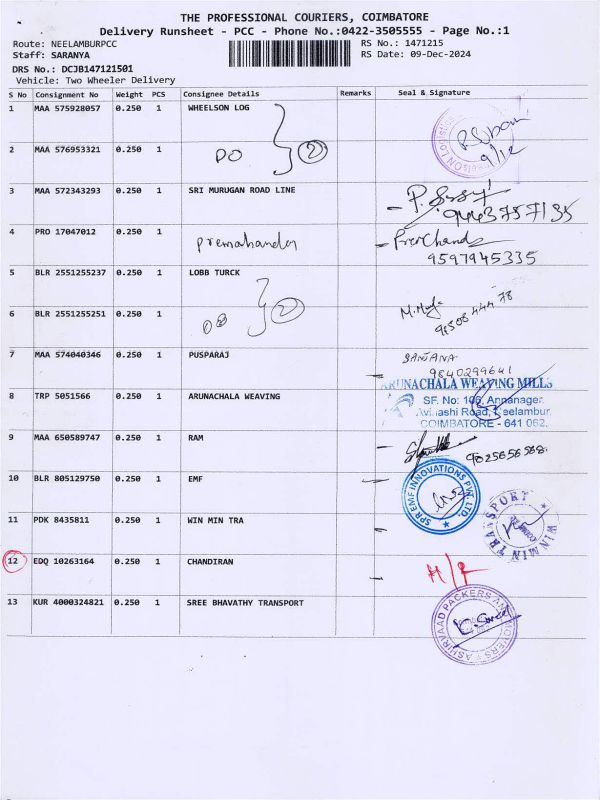 THE PROFESSIONAL COURIERS, COIMBATORE
Delivery Runsheet - PCC - Phone No.:0422-3505555 - Page No.:1
Route: NEELAMBURPCC
RS No.: 1471215
Staff: SARANYA
RS Date: 09-Dec-2024
DRS No.: DCJB147121501
Vehicle: Two Wheeler Delivery
S No Consignment No Weight PCS Consignee Details Remarks Seal & Signature
1 MAA 575928057 0.250 1 WHEELSON LOG
9/12
2 MAA 576953321 0.250 1 DO 2
3 MAA 572343293 0.250 1 SRI MURUGAN ROAD LINE
9443757135
4 PRO 17047012 0.250 1 premahander PremChand
9597945335
5 BLR 2551255237 0.250 1 LOBB TURCK
2
6 BLR 2551255251 0.250 1 DO
7 MAA 574040346 0.250 1 PUSPARAJ SANJANA
9840299641
ARUNACHALA WEAVING MILLS
8 TRP 5051566 0.250 1 ARUNACHALA WEAVING SF. No: 106, Annanagar,
Avinashi Road, Neelambur
COIMBATORE - 641 062.
9 MAA 650589747 0.250 1 RAM
9025656588
10 BLR 805129750 0.250 1 EMF SPR EMF INNOVATIONS PVT. LTD.
11 PDK 8435811 0.250 1 WIN MIN TRA WINMIN TRANSPORT
12 EDQ 10263164 0.250 1 CHANDIRAN H/R
13 KUR 4000324821 0.250 1 SREE BHAVATHY TRANSPORT
ASHIRVAAD PACKERS AND MOVERS